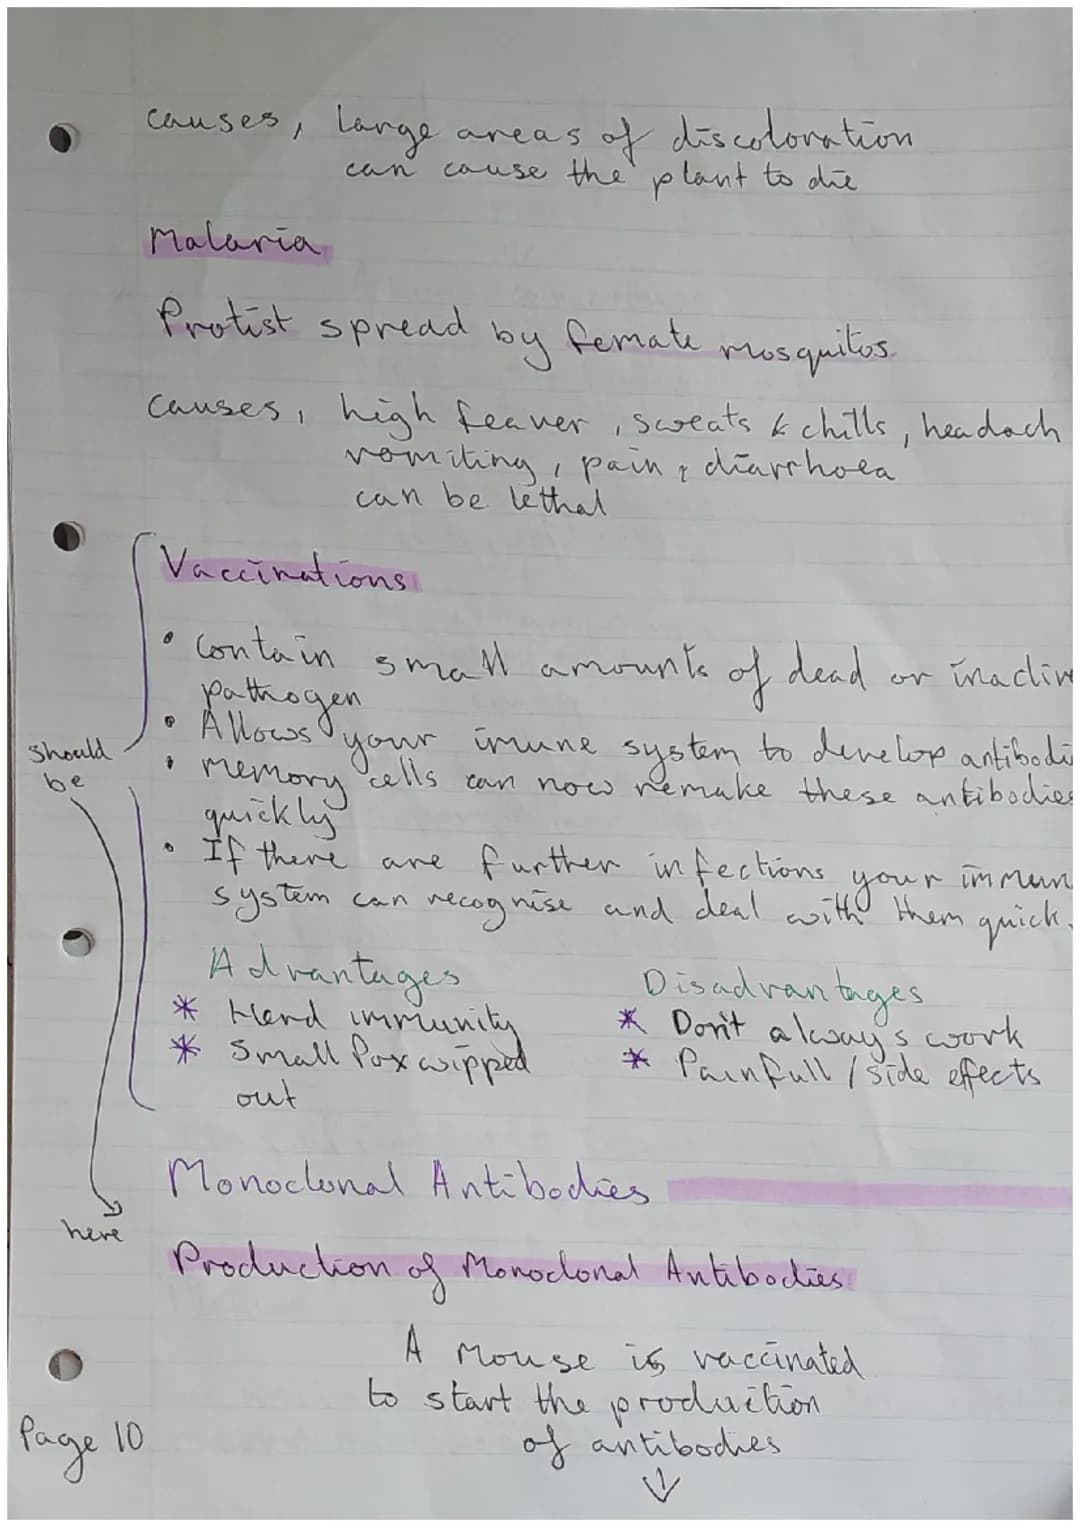 causes, large areas of discoloration
can cause the plant to die
Malaria
Protist spread by female mosquitos
causes, high feaver, sweats & chills, headach
vomiting, pain & diarrhoea
can be lethal
Vaccinations
• Contain small amounts of dead or inactive
pathogen
• Allows your imune system to develop antibodi
• Memory cells can now remake these antibodies
quickly
• If there are further infections your immun
system can recognise and deal with them quick
should
be
Advantages
* Herd immunity
* Small Pox wipped
out
Disadvantages
* Don't always work
* Painfull / side effects
here
Monoclonal Antibodies
Production of Monoclonal Antibodies
A Mouse is vaccinated
to start the production
of antibodies
↓
Page 10